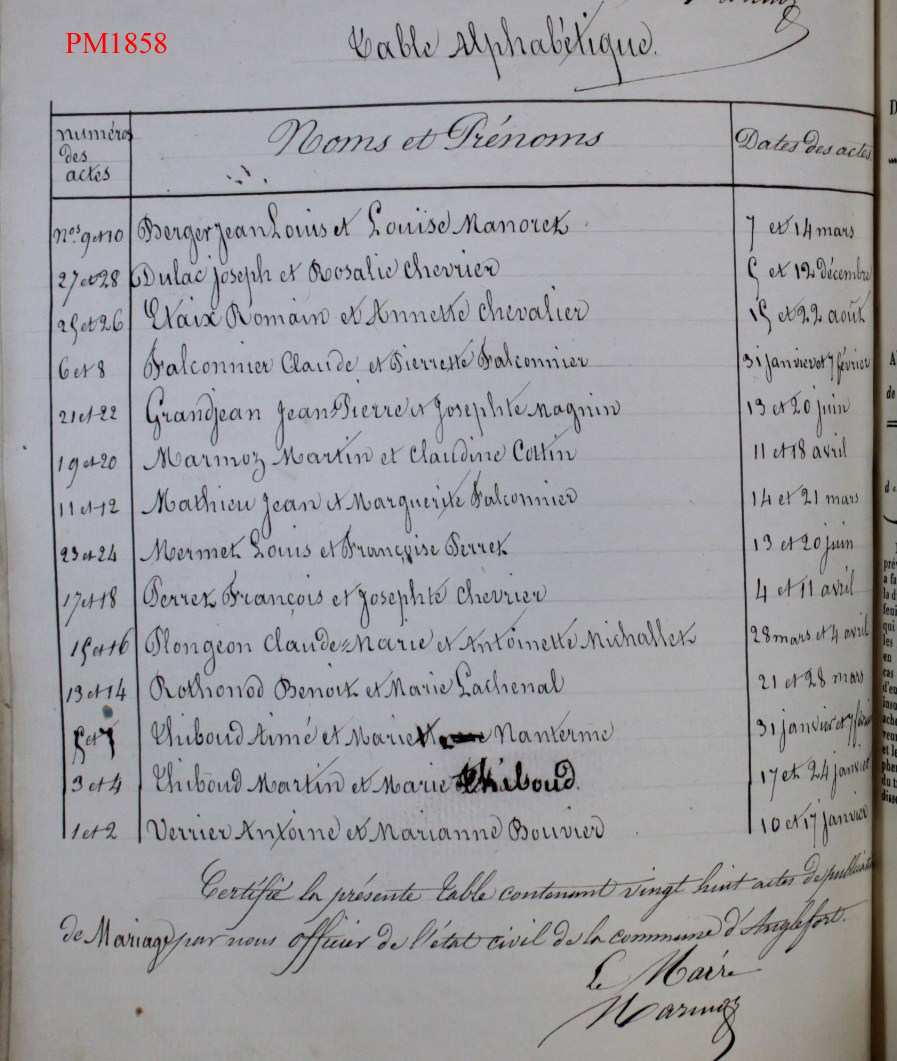 PM1858
Table Alphabétique.
numéros des actes
Noms et Prénoms
Dates des actes
Nos 9 et 10 Berger Jean Louis et Louise Manoret 7 et 14 mars
27 et 28 Dulac Joseph et Rosalie Chevrier 5 et 12 décembre
25 et 26 Etaix Romain et Annette Chevalier 15 et 22 août
6 et 8 Falconnier Claude et Pierrette Falconnier 31 janvier et 7 février
21 et 22 Grandjean Jean-Pierre et Josephte Magnin 13 et 20 juin
19 et 20 Marmoz Martin et Claudine Cottin 11 et 18 avril
11 et 12 Mathieu Jean et Marguerite Falconnier 14 et 21 mars
23 et 24 Mermet Louis et Françoise Perret 13 et 20 juin
17 et 18 Perret François et Josephte Chevrier 4 et 11 avril
15 et 16 Plongeon Claude-Marie et Antoinette Michallet 28 mars et 4 avril
13 et 14 Rothonod Benoit et Marie Lachenal 21 et 28 mars
5 et 7 Thiboud Aimé et Marie Nanterme 31 janvier et 7 févri
3 et 4 Thiboud Martin et Marie Thiboud. 17 et 24 janvier
1 et 2 Verrier Antoine et Marianne Bouvier 10 et 17 janvier
Certifié la présente table contenant vingt huit actes de publication
de Mariage par nous officier de l'état civil de la commune d'Anglefort.
Le Maire
Marmoz